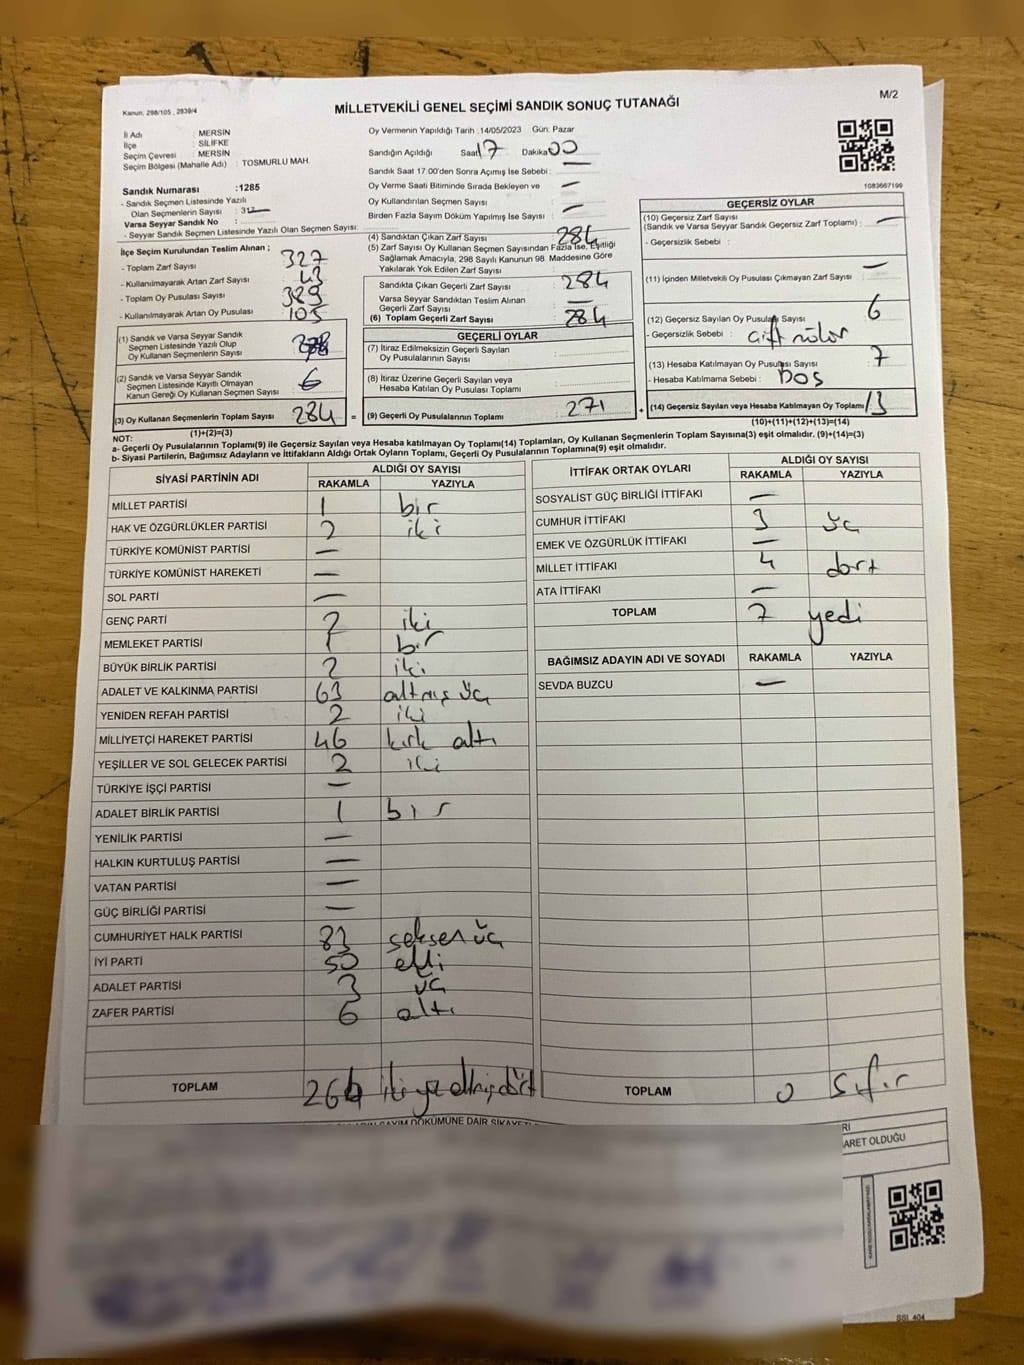 Kanun: 298/105 , 2839/4
MİLLETVEKİLİ GENEL SEÇİMİ SANDIK SONUÇ TUTANAĞI
M/2
İl Adı : MERSİN
İlçe : SİLİFKE
Seçim Çevresi : MERSİN
Seçim Bölgesi (Mahalle Adı) : TOSMURLU MAH.
Oy Vermenin Yapıldığı Tarih :14/05/2023 Gün: Pazar
Sandığın Açıldığı Saat 17 Dakika 00
Sandık Saat 17.00'den Sonra Açımış İse Sebebi : —
Oy Verme Saati Bitiminde Sırada Bekleyen ve
Oy Kullandırılan Seçmen Sayısı : —
Birden Fazla Sayım Döküm Yapılmış İse Sayısı : —
1083667199
Sandık Numarası :1285
- Sandık Seçmen Listesinde Yazılı
Olan Seçmenlerin Sayısı :
Varsa Seyyar Sandık No :
- Seyyar Sandık Seçmen Listesinde Yazılı Olan Seçmen Sayısı:
İlçe Seçim Kurulundan Teslim Alınan ;
- Toplam Zarf Sayısı : 327
- Kullanılmayarak Artan Zarf Sayısı : 43
- Toplam Oy Pusulası Sayısı : 389
- Kullanılmayarak Artan Oy Pusulası : 105
(1) Sandık ve Varsa Seyyar Sandık
Seçmen Listesinde Yazılı Olup
Oy Kullanan Seçmenlerin Sayısı :
(2) Sandık ve Varsa Seyyar Sandık
Seçmen Listesinde Kayıtlı Olmayan
Kanun Gereği Oy Kullanan Seçmen Sayısı : 6
(3) Oy Kullanan Seçmenlerin Toplam Sayısı 284 =
(1)+(2)=(3)
(4) Sandıktan Çıkan Zarf Sayısı : 284
(5) Zarf Sayısı Oy Kullanan Seçmen Sayısından Fazla İse, Eşitliği
Sağlamak Amacıyla, 298 Sayılı Kanunun 98. Maddesine Göre
Yakılarak Yok Edilen Zarf Sayısı :
Sandıkta Çıkan Geçerli Zarf Sayısı : 284
Varsa Seyyar Sandıktan Teslim Alınan
Geçerli Zarf Sayısı : —
(6) Toplam Geçerli Zarf Sayısı : 284
GEÇERLİ OYLAR
(7) İtiraz Edilmeksizin Geçerli Sayılan
Oy Pusulalarının Sayısı :
(8) İtiraz Üzerine Geçerli Sayılan veya
Hesaba Katılan Oy Pusulası Toplamı :
(9) Geçerli Oy Pusulalarının Toplamı : 271 +
GEÇERSİZ OYLAR
(10) Geçersiz Zarf Sayısı : —
(Sandık ve Varsa Seyyar Sandık Geçersiz Zarf Toplamı)
- Geçersizlik Sebebi :
(11) İçinden Milletvekili Oy Pusulası Çıkmayan Zarf Sayısı : —
(12) Geçersiz Sayılan Oy Pusulası Sayısı : 6
- Geçersizlik Sebebi : çift mühür
(13) Hesaba Katılmayan Oy Pusulası Sayısı : 7
- Hesaba Katılmama Sebebi : BOŞ
(14) Geçersiz Sayılan veya Hesaba Katılmayan Oy Toplamı 13
(10)+(11)+(12)+(13)=(14)
NOT:
a- Geçerli Oy Pusulalarının Toplamı(9) ile Geçersiz Sayılan veya Hesaba katılmayan Oy Toplamı(14) Toplamları, Oy Kullanan Seçmenlerin Toplam Sayısına(3) eşit olmalıdır. (9)+(14)=(3)
b- Siyasi Partilerin, Bağımsız Adayların ve İttifakların Aldığı Ortak Oyların Toplamı, Geçerli Oy Pusulalarının Toplamına(9) eşit olmalıdır.
SİYASİ PARTİNİN ADI ALDIĞI OY SAYISI
RAKAMLA YAZIYLA
MİLLET PARTİSİ 1 bir
HAK VE ÖZGÜRLÜKLER PARTİSİ 2 iki
TÜRKİYE KOMÜNİST PARTİSİ —
TÜRKİYE KOMÜNİST HAREKETİ —
SOL PARTİ —
GENÇ PARTİ 2 iki
MEMLEKET PARTİSİ 1 bir
BÜYÜK BİRLİK PARTİSİ 2 iki
ADALET VE KALKINMA PARTİSİ 63 altmış üç
YENİDEN REFAH PARTİSİ 2 iki
MİLLİYETÇİ HAREKET PARTİSİ 46 kırk altı
YEŞİLLER VE SOL GELECEK PARTİSİ 2 iki
TÜRKİYE İŞÇİ PARTİSİ —
ADALET BİRLİK PARTİSİ 1 bir
YENİLİK PARTİSİ —
HALKIN KURTULUŞ PARTİSİ —
VATAN PARTİSİ —
GÜÇ BİRLİĞİ PARTİSİ —
CUMHURİYET HALK PARTİSİ 83 seksen üç
İYİ PARTİ 50 elli
ADALET PARTİSİ 3 üç
ZAFER PARTİSİ 6 altı
TOPLAM 264 iki yüz altmış dört
İTTİFAK ORTAK OYLARI ALDIĞI OY SAYISI
RAKAMLA YAZIYLA
SOSYALİST GÜÇ BİRLİĞİ İTTİFAKI —
CUMHUR İTTİFAKI 3 üç
EMEK VE ÖZGÜRLÜK İTTİFAKI —
MİLLET İTTİFAKI 4 dört
ATA İTTİFAKI —
TOPLAM 7 yedi
BAĞIMSIZ ADAYIN ADI VE SOYADI RAKAMLA YAZIYLA
SEVDA BUZCU —
TOPLAM 0 sıfır
SAYIM DÖKÜMÜNE DAİR ŞİKAYET
ARET OLDUĞU